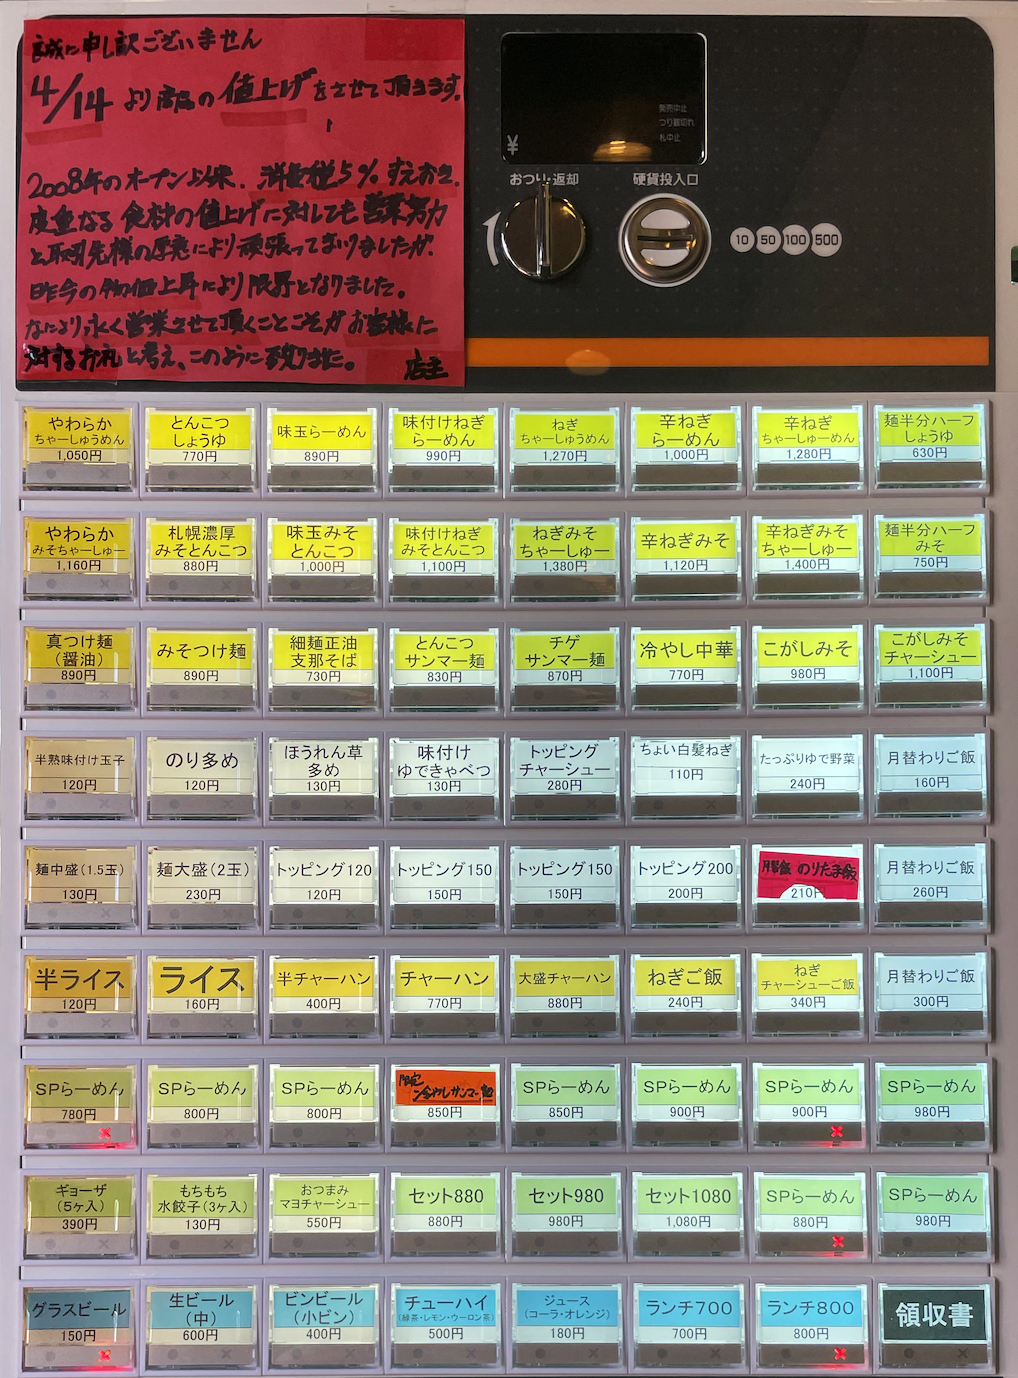 誠に申し訳ございません
4/14 より商品の値上げをさせて頂きます。
2008年のオープン以来、消費税5%すえおき、
度重なる食材の値上げに対しても営業努力
と取引先様の厚意により頑張ってまいりましたが、
昨今の物価上昇により限界となりました。
なにより永く営業させて頂くことこそがお客様に
対するお礼と考え、このように致しました。 店主
発売中止
つり銭切れ
札中止
¥
おつり・返却 硬貨投入口
10 50 100 500
やわらか
ちゃーしゅうめん
1,050円
とんこつ
しょうゆ
770円
味玉らーめん
890円
味付けねぎ
らーめん
990円
ねぎ
ちゃーしゅうめん
1,270円
辛ねぎ
らーめん
1,000円
辛ねぎ
ちゃーしゅーめん
1,280円
麺半分ハーフ
しょうゆ
630円
やわらか
みそちゃーしゅー
1,160円
札幌濃厚
みそとんこつ
880円
味玉みそ
とんこつ
1,000円
味付けねぎ
みそとんこつ
1,100円
ねぎみそ
ちゃーしゅー
1,380円
辛ねぎみそ
1,120円
辛ねぎみそ
ちゃーしゅー
1,400円
麺半分ハーフ
みそ
750円
真つけ麺
(醤油)
890円
みそつけ麺
890円
細麺正油
支那そば
730円
とんこつ
サンマー麺
830円
チゲ
サンマー麺
870円
冷やし中華
770円
こがしみそ
980円
こがしみそ
チャーシュー
1,100円
半熟味付け玉子
120円
のり多め
120円
ほうれん草
多め
130円
味付け
ゆできゃべつ
130円
トッピング
チャーシュー
280円
ちょい白髪ねぎ
110円
たっぷりゆで野菜
240円
月替わりご飯
160円
麺中盛(1.5玉)
130円
麺大盛(2玉)
230円
トッピング120
120円
トッピング150
150円
トッピング150
150円
トッピング200
200円
のりたま飯
210円
月替わりご飯
260円
半ライス
120円
ライス
160円
半チャーハン
400円
チャーハン
770円
大盛チャーハン
880円
ねぎご飯
240円
ねぎ
チャーシューご飯
340円
月替わりご飯
300円
SPらーめん
780円
SPらーめん
800円
SPらーめん
800円
限定
冷やしサンマー麺
850円
SPらーめん
850円
SPらーめん
900円
SPらーめん
900円
SPらーめん
980円
ギョーザ
(5ヶ入)
390円
もちもち
水餃子(3ヶ入)
130円
おつまみ
マヨチャーシュー
550円
セット880
880円
セット980
980円
セット1080
1,080円
SPらーめん
880円
SPらーめん
980円
グラスビール
150円
生ビール
(中)
600円
ビンビール
(小ビン)
400円
チューハイ
(緑茶・レモン・ウーロン茶)
500円
ジュース
(コーラ・オレンジ)
180円
ランチ700
700円
ランチ800
800円
領収書